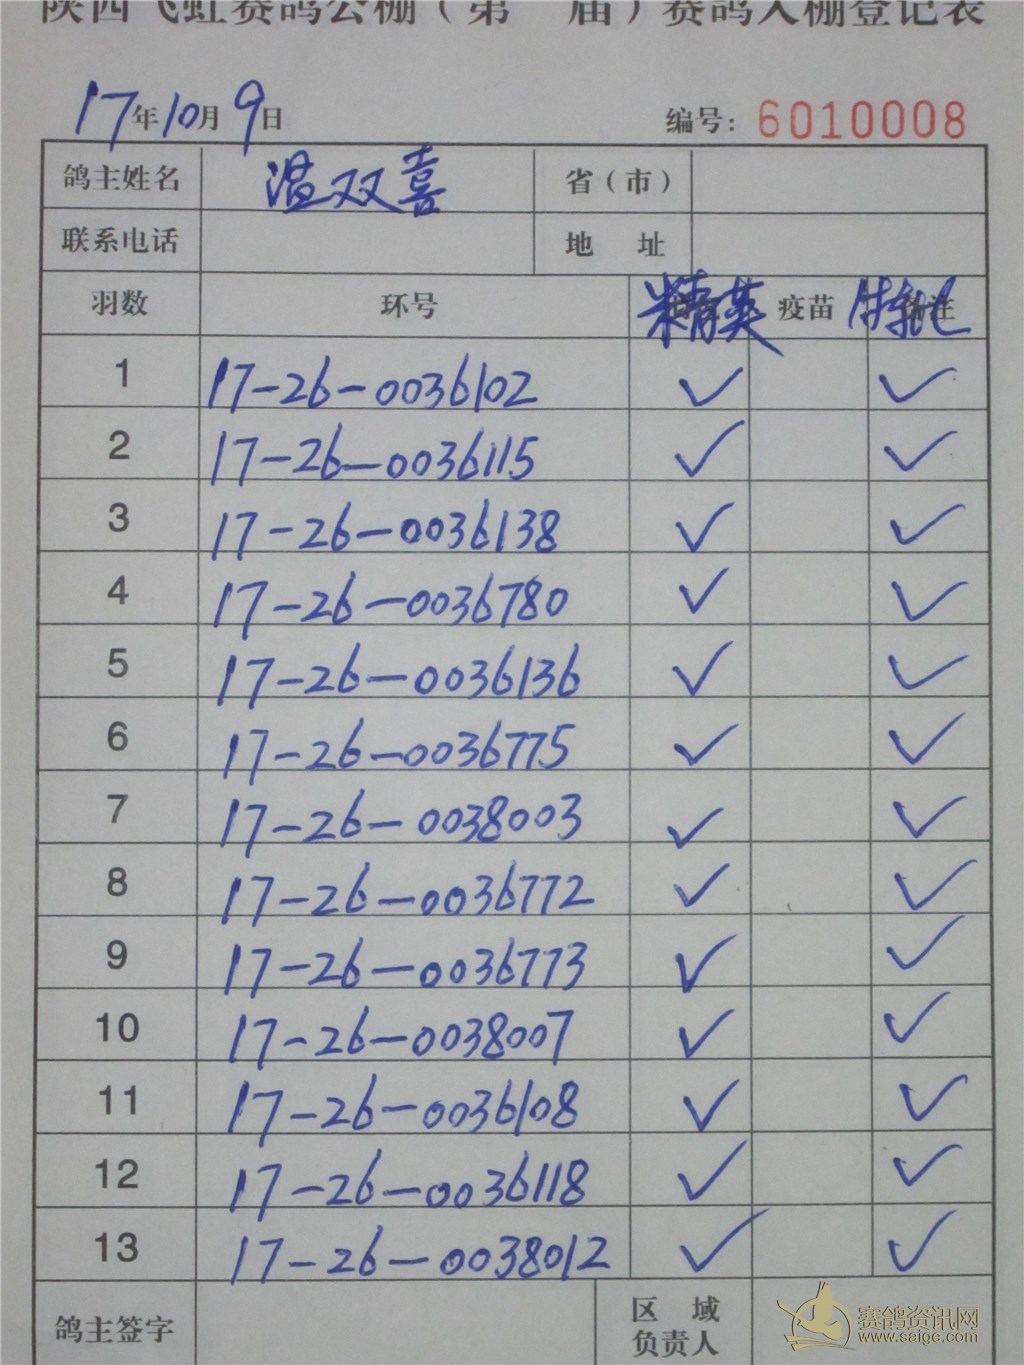 陕西飞虹赛鸽公棚（第 届）赛鸽入棚登记表
17年10月9日 编号：6010008
鸽主姓名 温双喜 省（市）
联系电话 地 址
羽数 环号 精英 疫苗 注
1 17-26-0036102 ✓ ✓
2 17-26-0036115 ✓ ✓
3 17-26-0036138 ✓ ✓
4 17-26-0036780 ✓ ✓
5 17-26-0036136 ✓ ✓
6 17-26-0036775 ✓ ✓
7 17-26-0038003 ✓ ✓
8 17-26-0036772 ✓ ✓
9 17-26-0036773 ✓ ✓
10 17-26-0038007 ✓ ✓
11 17-26-0036108 ✓ ✓
12 17-26-0036118 ✓ ✓
13 17-26-0038012 ✓ ✓
鸽主签字 区 域
负责人
赛鸽资讯网
www.saige.com